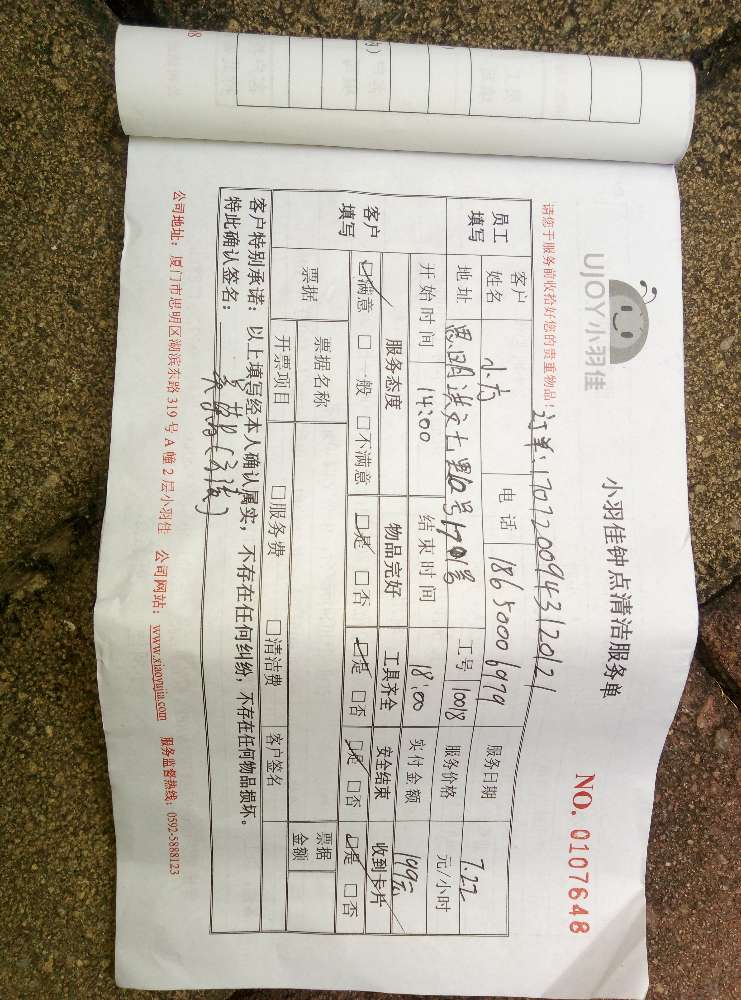 UJOY小羽佳
小羽佳钟点清洁服务单
NO. 0107648
请您于服务前收拾好您的贵重物品！
订单:17072200943120121
员工填写 客户姓名 电话 18650006979 服务日期 7.22
地址 思明 工号 10018 服务价格 元/小时
开始时间 14:00 结束时间 18:00 实付金额 199元
客户填写 服务态度 物品完好 工具齐全 安全结束 收到卡片
☑满意 □一般 □不满意 ☑是 □否 ☑是 □否 ☑是 □否 ☑是 □否
票据 票据名称 票据金额
开票项目 □服务费 □清洁费 客户签名
客户特别承诺：以上填写经本人确认属实，不存在任何纠纷，不存在任何物品损坏。
特此确认签名：
公司地址：厦门市思明区湖滨东路319号A幢2层小羽佳 公司网站：www.xiaoyujia.com 服务监督热线：0592-5888123